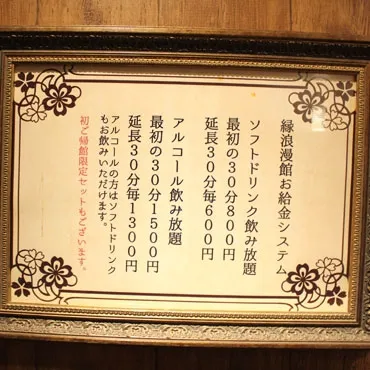 縁浪漫館お給金システム
ソフトドリンク飲み放題
最初の30分800円
延長30分毎600円
アルコール飲み放題
最初の30分1500円
延長30分毎1300円
アルコールの方はソフトドリンク
もお飲みいただけます。
初ご帰館限定セットもございます。